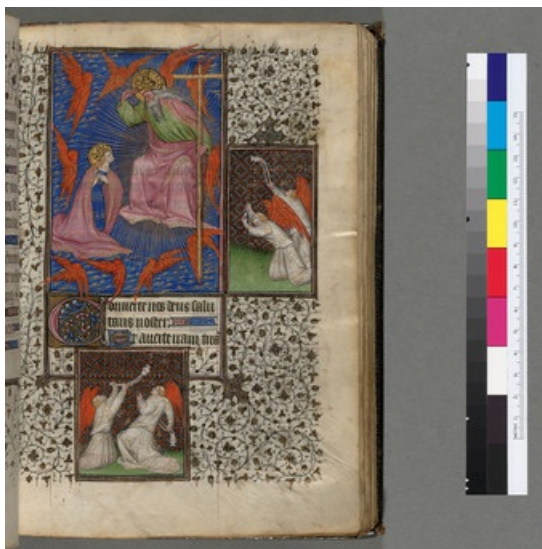 Conuerte nos deus salu
taris noster:
Et auerte iram